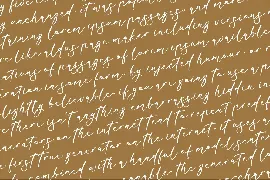 unchanged. it was popular
lorem ipsum passages, and more
like aldus page maker including versions
of passages of lorem ipsum available
alteration in some form, by injected humour, or
slightly believable. if you are going to use a
there isn't anything embarrassing hidden in
generators on the internet tend to repeat predef
first true generator on the internet. it uses a
combined with a handful of model senten
the generated